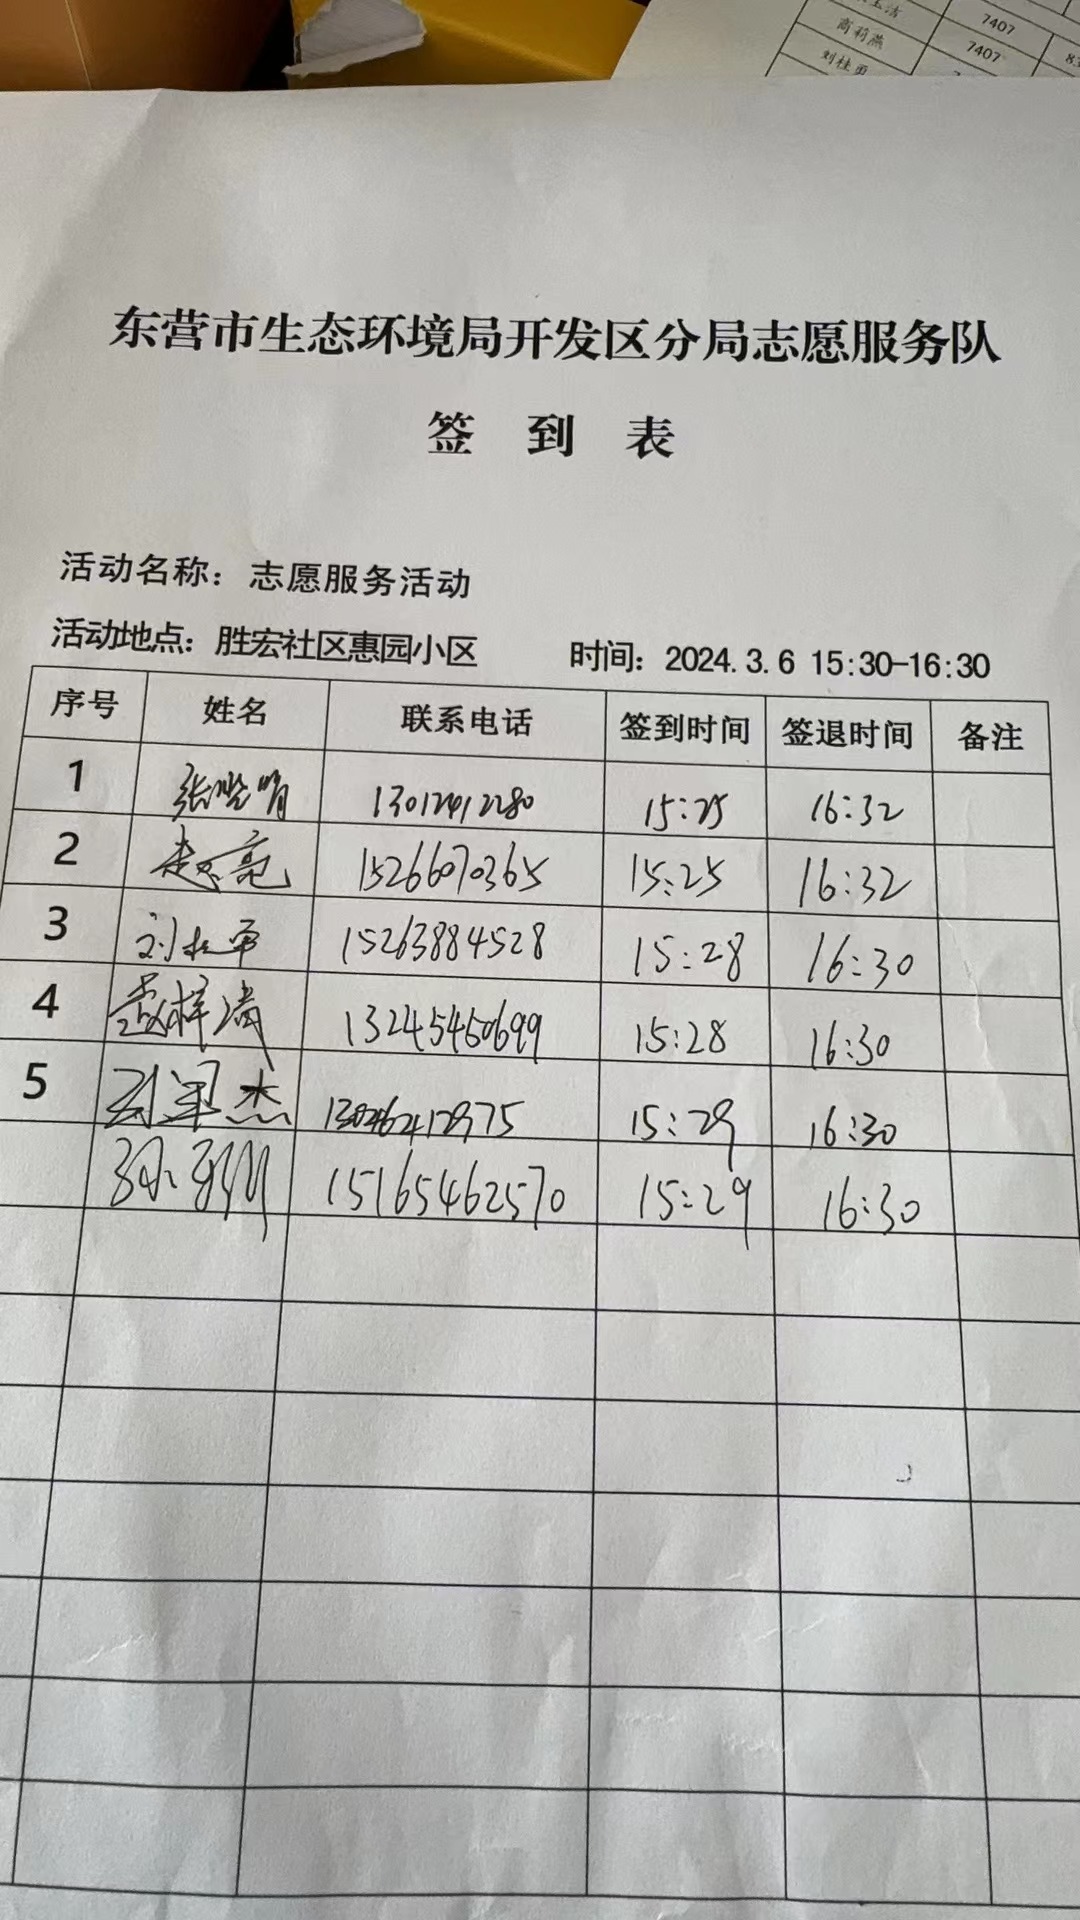 7407
商莉燕
7407
刘桂勇
东营市生态环境局开发区分局志愿服务队
签 到 表
活动名称：志愿服务活动
活动地点：胜宏社区惠园小区 时间：2024.3.6 15:30-16:30
序号 姓名 联系电话 签到时间 签退时间 备注
1 15:25 16:32
2 15266070365 15:25 16:32
3 15263884528 15:28 16:30
4 13245460699 15:28 16:30
5 刘军杰 15:29 16:30
15165462570 15:29 16:30